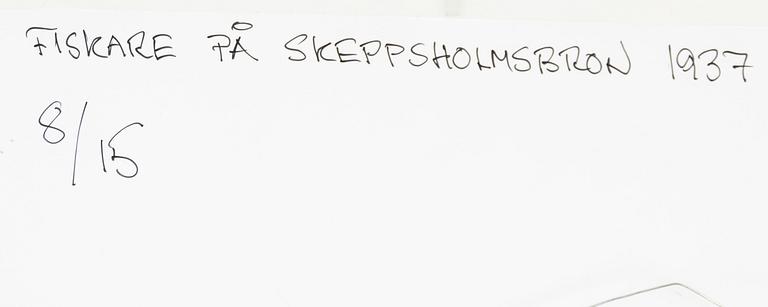 FISKARE PÅ SKEPPSHOLMSBRON 1937
8/15